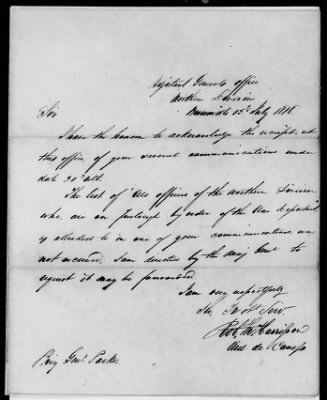 Adjutant General's office
Northern Division
Brownville 12th July 1818
Sir
I have the honor to acknowledge the receipt, at
this office of your several communications under
date 30th ult.
The list of the officers of the northern Division
who are on furlough by order of the War Department,
as attended to in one of your communications, was
not received. I am directed by the Maj Genl to
request it may be forwarded
I am very respectfully
Sir, Yr Obt Serv
Aid de Camp
Brig Genl Parker